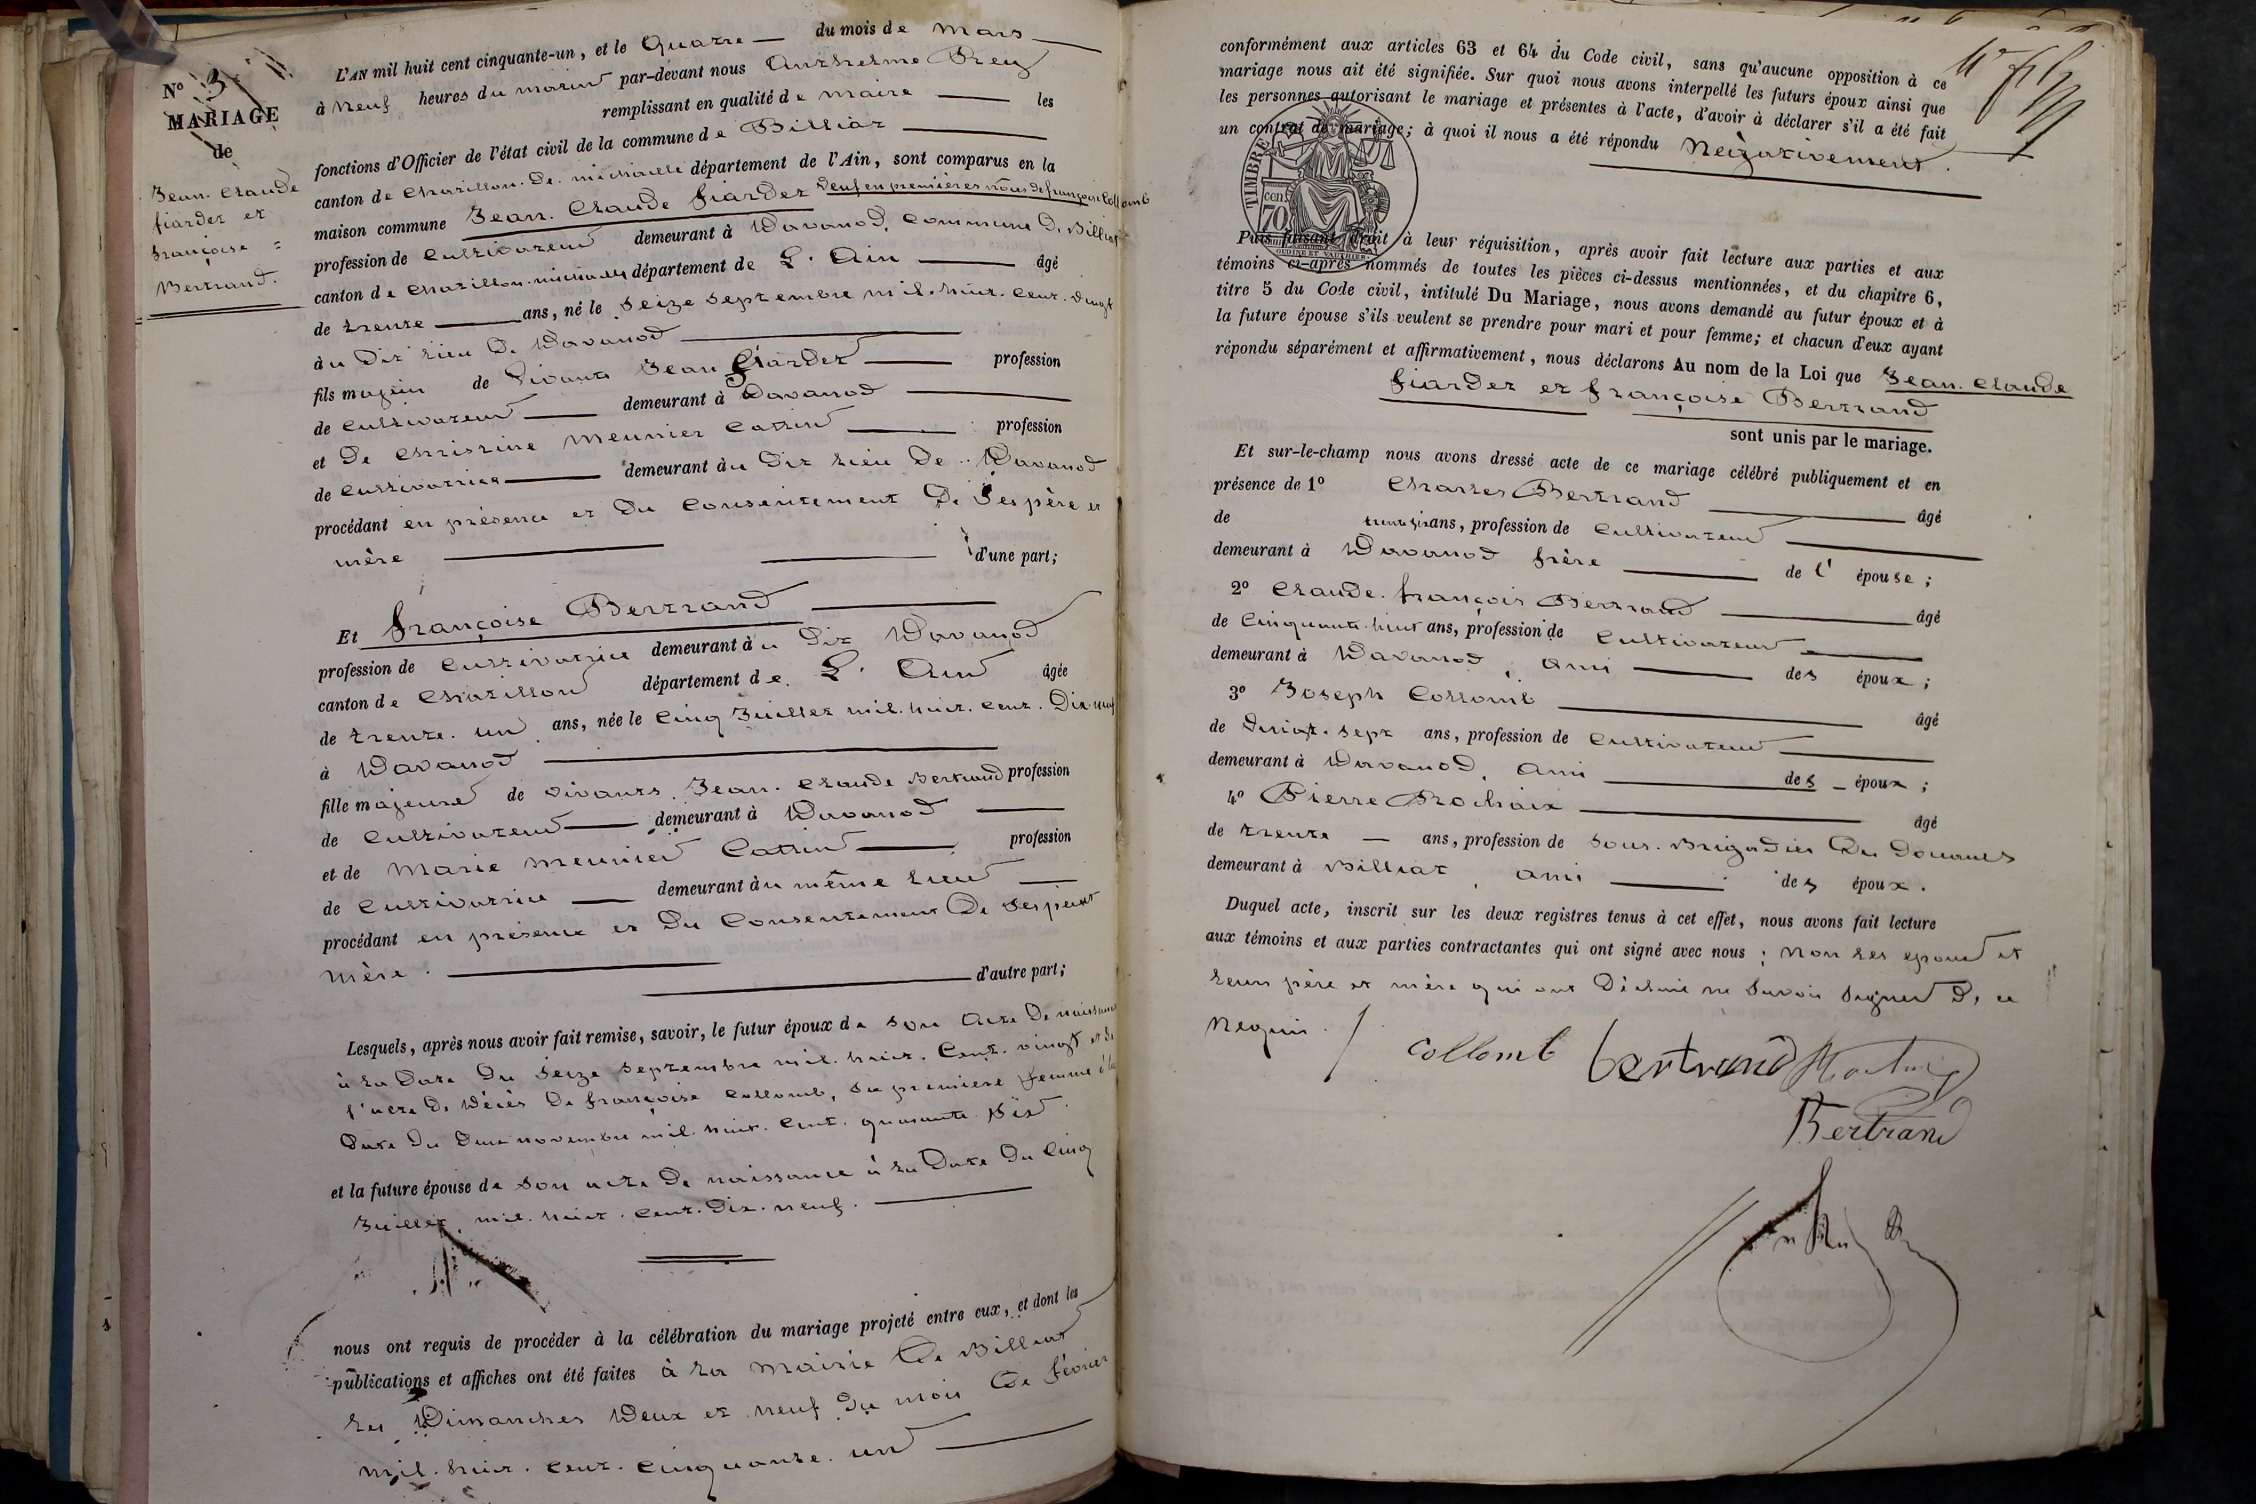 N° 3
MARIAGE
de
Jean. Claude
fiardet et
françoise =
Bertrand.
L'AN mil huit cent cinquante-un, et le Quatre du mois de Mars
à neuf heures du matin par-devant nous Anthelme Rey
remplissant en qualité de maire les
fonctions d'Officier de l'état civil de la commune de Billiat
canton de Chatillon. De. michaille département de l'Ain, sont comparus en la
maison commune Jean. Claude fiardet veuf en premières nôces de françoise Collomb
profession de Cultivateur demeurant à Davanod, Commune D. Billiat
canton de Chatillon. michaille département de L'Ain âgé
de trente ans, né le seize septembre mil. huit. cent. vingt
au Dit lieu De Davanod
fils majeur de vivants Jean fiardet profession
de cultivateur demeurant à Davanod
et De Christine Meunier Cattin profession
de cultivatrice demeurant au Dit lieu De Davanod
procédant en présence et Du Consentement De Ses père et
mère d'une part;
Et françoise Bertrand
profession de Cultivatrice demeurant à u Dit Davanod
canton de Chatillon département de L'Ain âgée
de trente. un ans, née le Cinq Juillet mil. huit. cent. Dix. neuf
à Davanod
fille majeure de vivants Jean. Claude Bertrand profession
de Cultivateur demeurant à Davanod
et de Marie Meunier Cattin profession
de Cultivatrice demeurant au même lieu
procédant en présence et Du Consentement De Ses père et
mère. d'autre part;
Lesquels, après nous avoir fait remise, savoir, le futur époux de son Acte De naissance
à la Date Du Seize Septembre mil. huit. Cent. vingt et De
l'acte De Décès De françoise Collomb, sa première femme à la
Date Du novembre mil. huit. Cent. quarante
et la future épouse de son acte De naissance à la Date Du Cinq
Juillet mil. huit. cent. Dix. neuf.
nous ont requis de procéder à la célébration du mariage projeté entre eux, et dont les
publications et affiches ont été faites à la Mairie De Billiat
les Dimanches Deux et neuf Du mois De février
mil. huit. cent. cinquante. un
conformément aux articles 63 et 64 du Code civil, sans qu'aucune opposition à ce
mariage nous ait été signifiée. Sur quoi nous avons interpellé les futurs époux ainsi que
les personnes autorisant le mariage et présentes à l'acte, d'avoir à déclarer s'il a été fait
un contrat de mariage; à quoi il nous a été répondu Négativement.
TIMBRE
70 cen.
OUDINE ET VAUTHIER.
Puis faisant droit à leur réquisition, après avoir fait lecture aux parties et aux
témoins ci-après nommés de toutes les pièces ci-dessus mentionnées, et du chapitre 6,
titre 5 du Code civil, intitulé Du Mariage, nous avons demandé au futur époux et à
la future épouse s'ils veulent se prendre pour mari et pour femme; et chacun d'eux ayant
répondu séparément et affirmativement, nous déclarons Au nom de la Loi que Jean. Claude
fiardet et françoise Bertrand
sont unis par le mariage.
Et sur-le-champ nous avons dressé acte de ce mariage célébré publiquement et en
présence de 1° Charles Bertrand âgé
de ans, profession de Cultivateur
demeurant à Davanod frère de l' épouse;
2° Claude. françois Bertrand âgé
de Cinquante. huit ans, profession de Cultivateur
demeurant à Davanod, ami des époux;
3° Joseph Collomb âgé
de vingt. sept ans, profession de Cultivateur
demeurant à Davanod, ami des époux;
4° Pierre Rochaix âgé
de trente ans, profession de Sous. Brigadier Des Douanes
demeurant à Billiat, ami des époux.
Duquel acte, inscrit sur les deux registres tenus à cet effet, nous avons fait lecture
aux témoins et aux parties contractantes qui ont signé avec nous; Non les époux et
leurs père et mère qui ont Déclaré ne Savoir signer D. ce
Requis.
Collomb bertrand
Bertrand